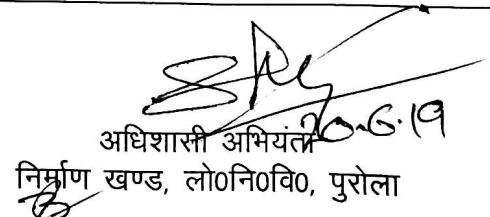 20.6.19
अधिशासी अभियंता
निर्माण खण्ड, लो0नि0वि0, पुरोला